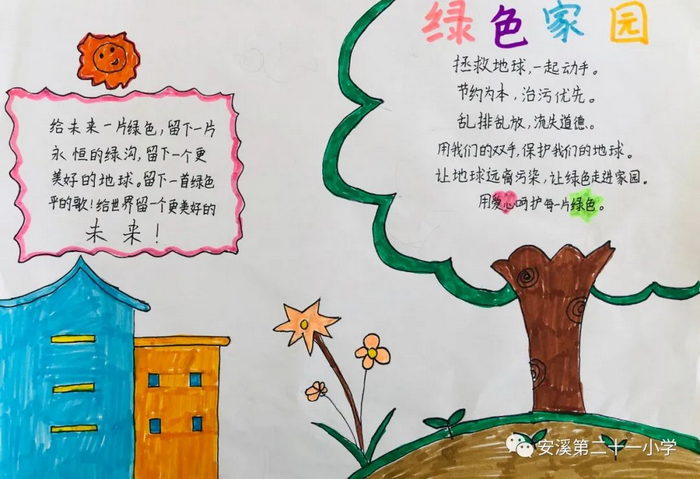 绿色家园
拯救地球,一起动手。
节约为本,治污优先。
乱排乱放,流失道德。
用我们的双手,保护我们的地球。
让地球远离污染,让绿色走进家园。
用爱心呵护每一片绿色。
给未来一片绿色,留下一片
永恒的绿沟,留下一个更
美好的地球。留下一首绿色
平的歌!给世界留一个更美好的
未来!
安溪第二十一小学